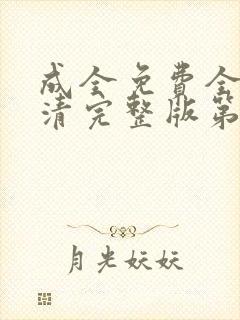 成全免费全
清完整版第
月光妖妖